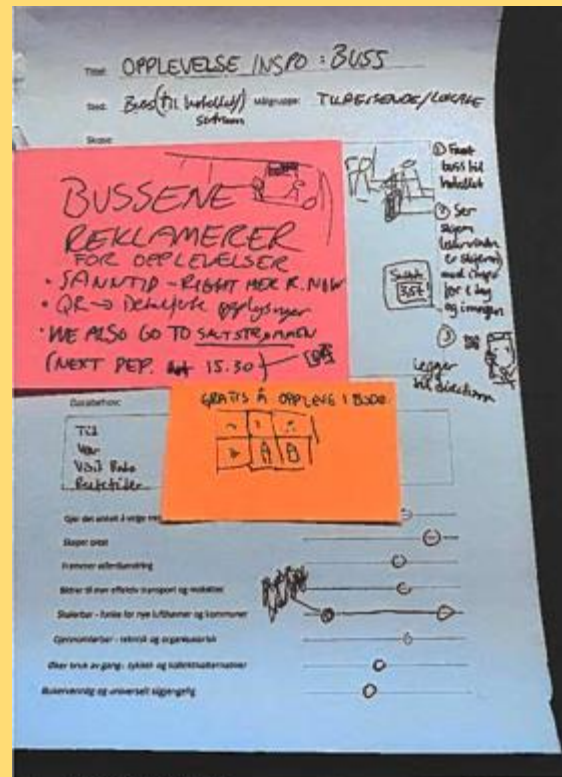 Tittel: OPPLEVELSE INSPO : BUSS
Sted: Buss (til hotellet) Målgruppe: TILREISENDE/LOKALE
sentrum
Skisse:
BUSSENE
REKLAMERER
FOR OPPLEVELSER
• SANNTID - RIGHT HER R. NOW
• QR → Detaljerte opplysninger
• WE ALSO GO TO SALTSTRAUMEN
(NEXT DEP. 15.30)
① Fant
buss til
hotellet
② Ser
skjerm
er skjerm)
med inspo
for i dag
og i morgen
③
Legger
til
GRATIS Å OPPLEVE I BODØ
Databehov:
Tid
Vær
Visit Bodø
Rutetider
Gjør det enkelt å velge
Skaper
Fremmer atferdsendring
Bidrar til mer effektiv transport og mobilitet
Skalerbar - funke for nye lufthavner og kommuner
Gjennomførbar - teknisk og organisatorisk
Øker bruk av gang-, sykkel- og kollektivalternativer
Brukervennlig og universelt tilgjengelig